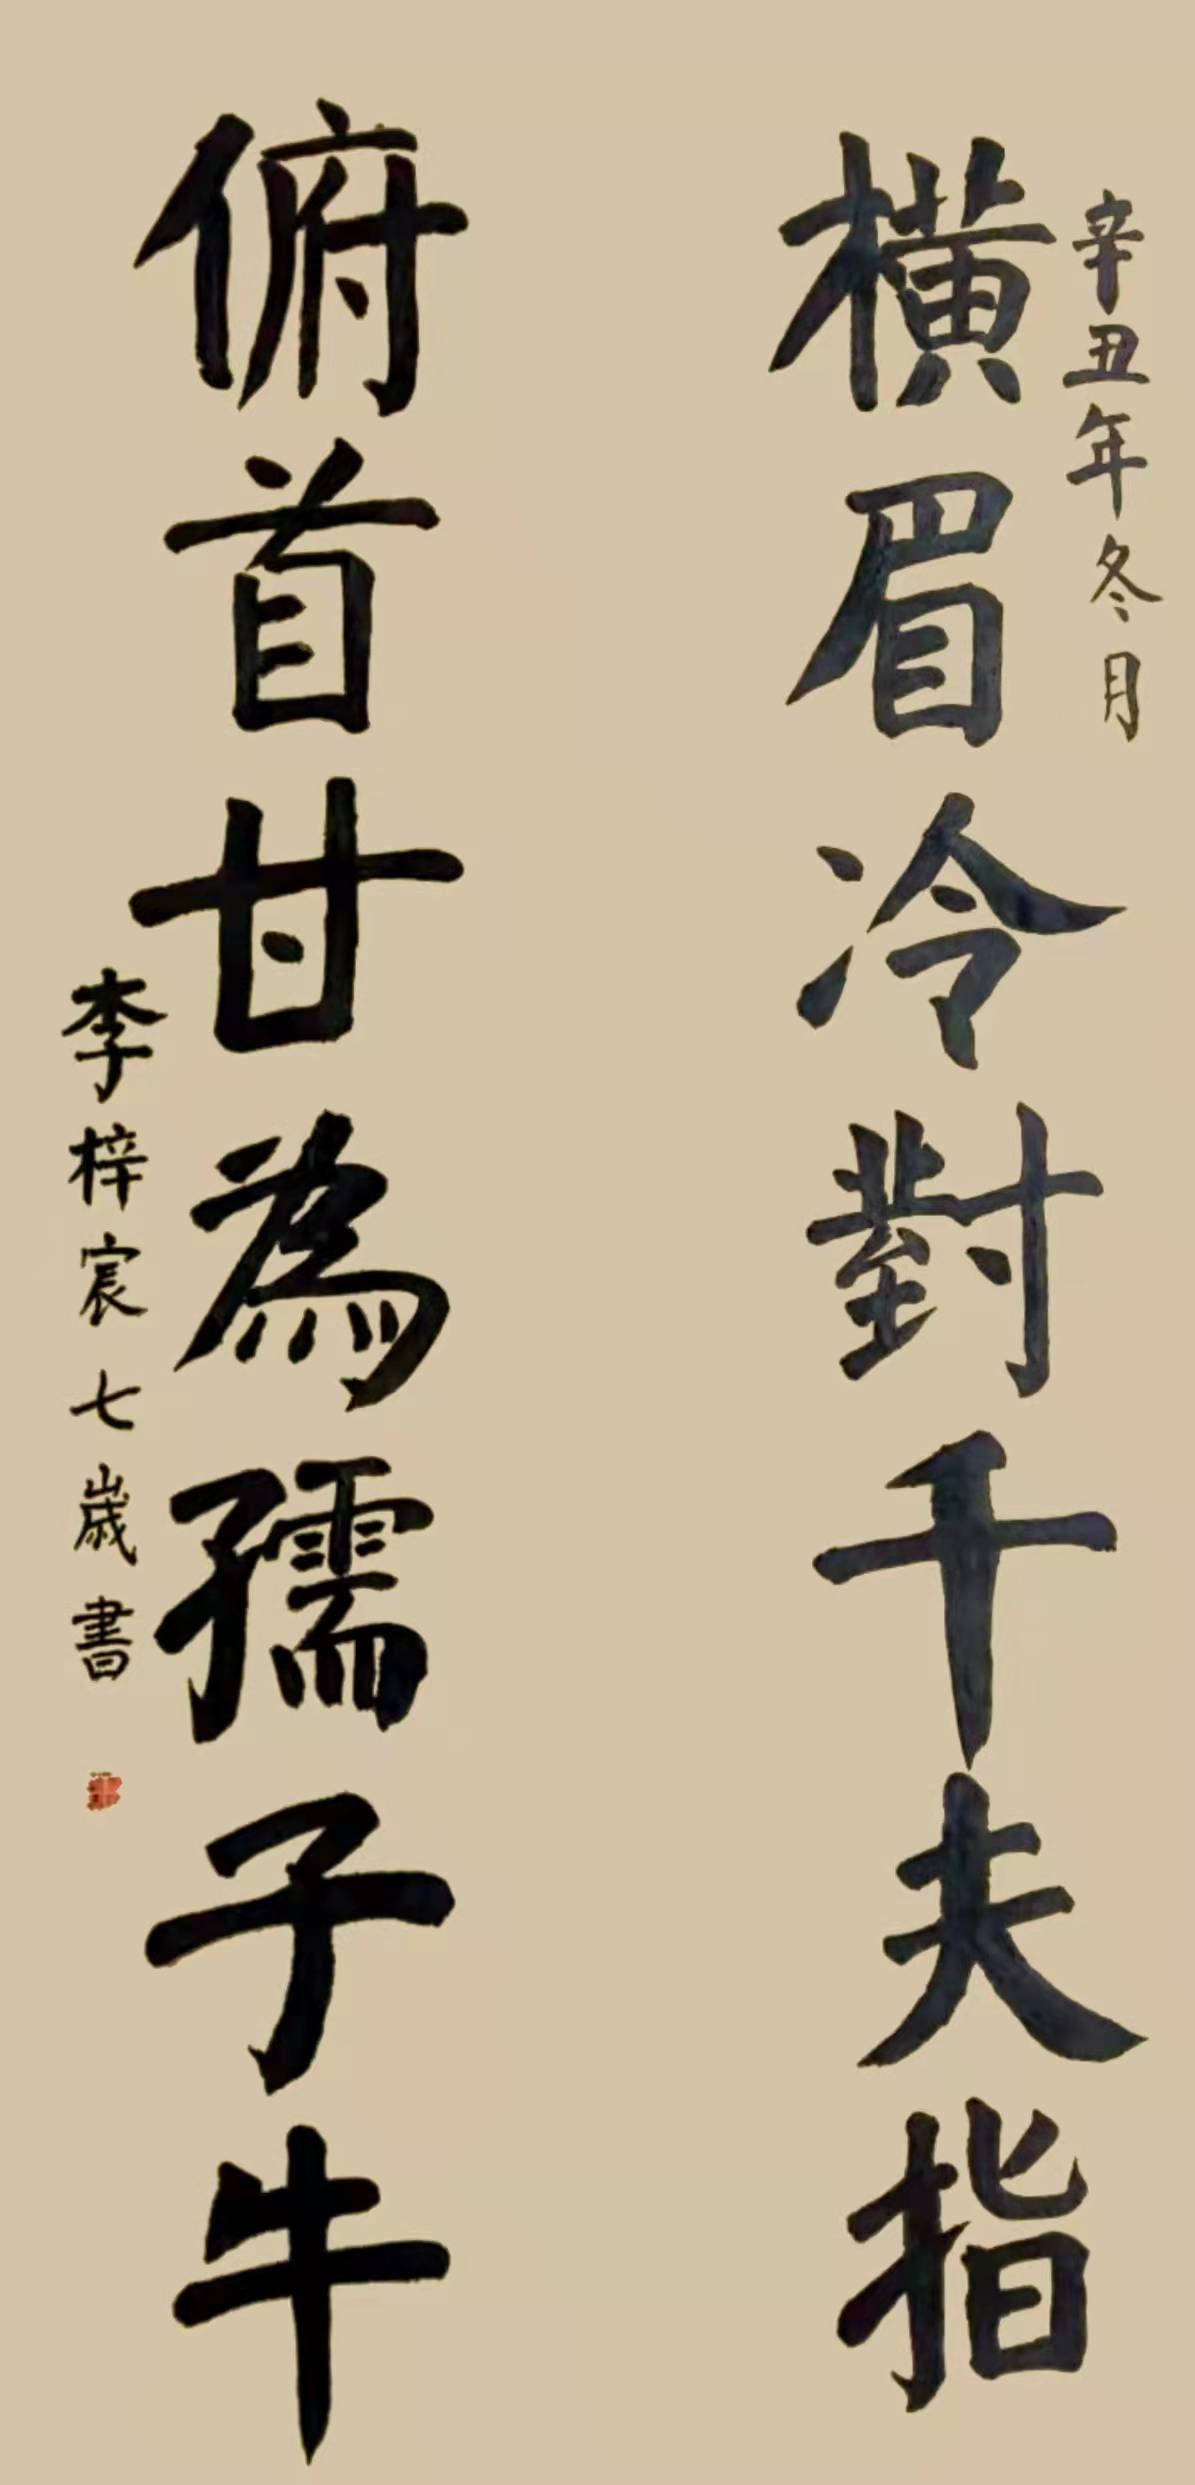 辛丑年冬月
横眉冷對千夫指
俯首甘為孺子牛
李梓宸七歲書